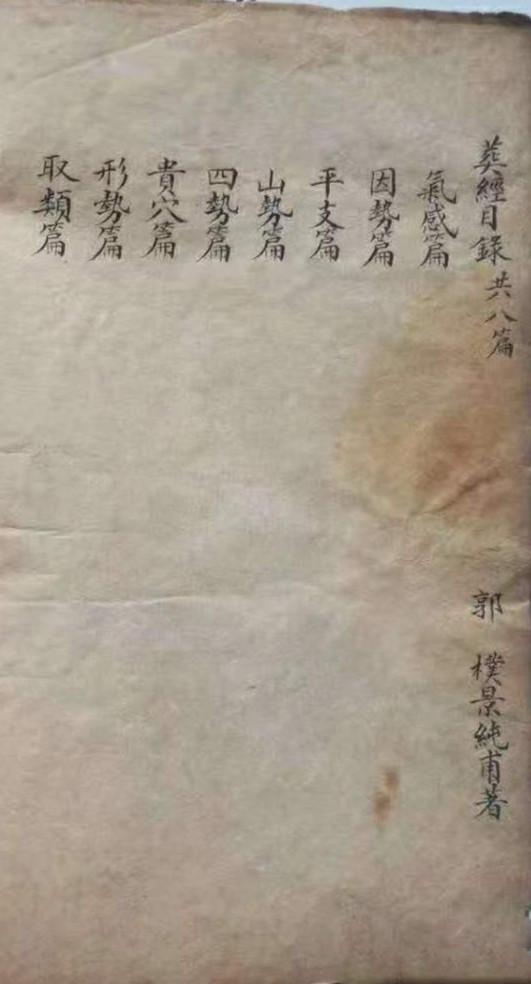 葬經目錄 共八篇 郭 樸景純甫著
氣感篇
因勢篇
平支篇
山勢篇
四勢篇
貴穴篇
形勢篇
取類篇